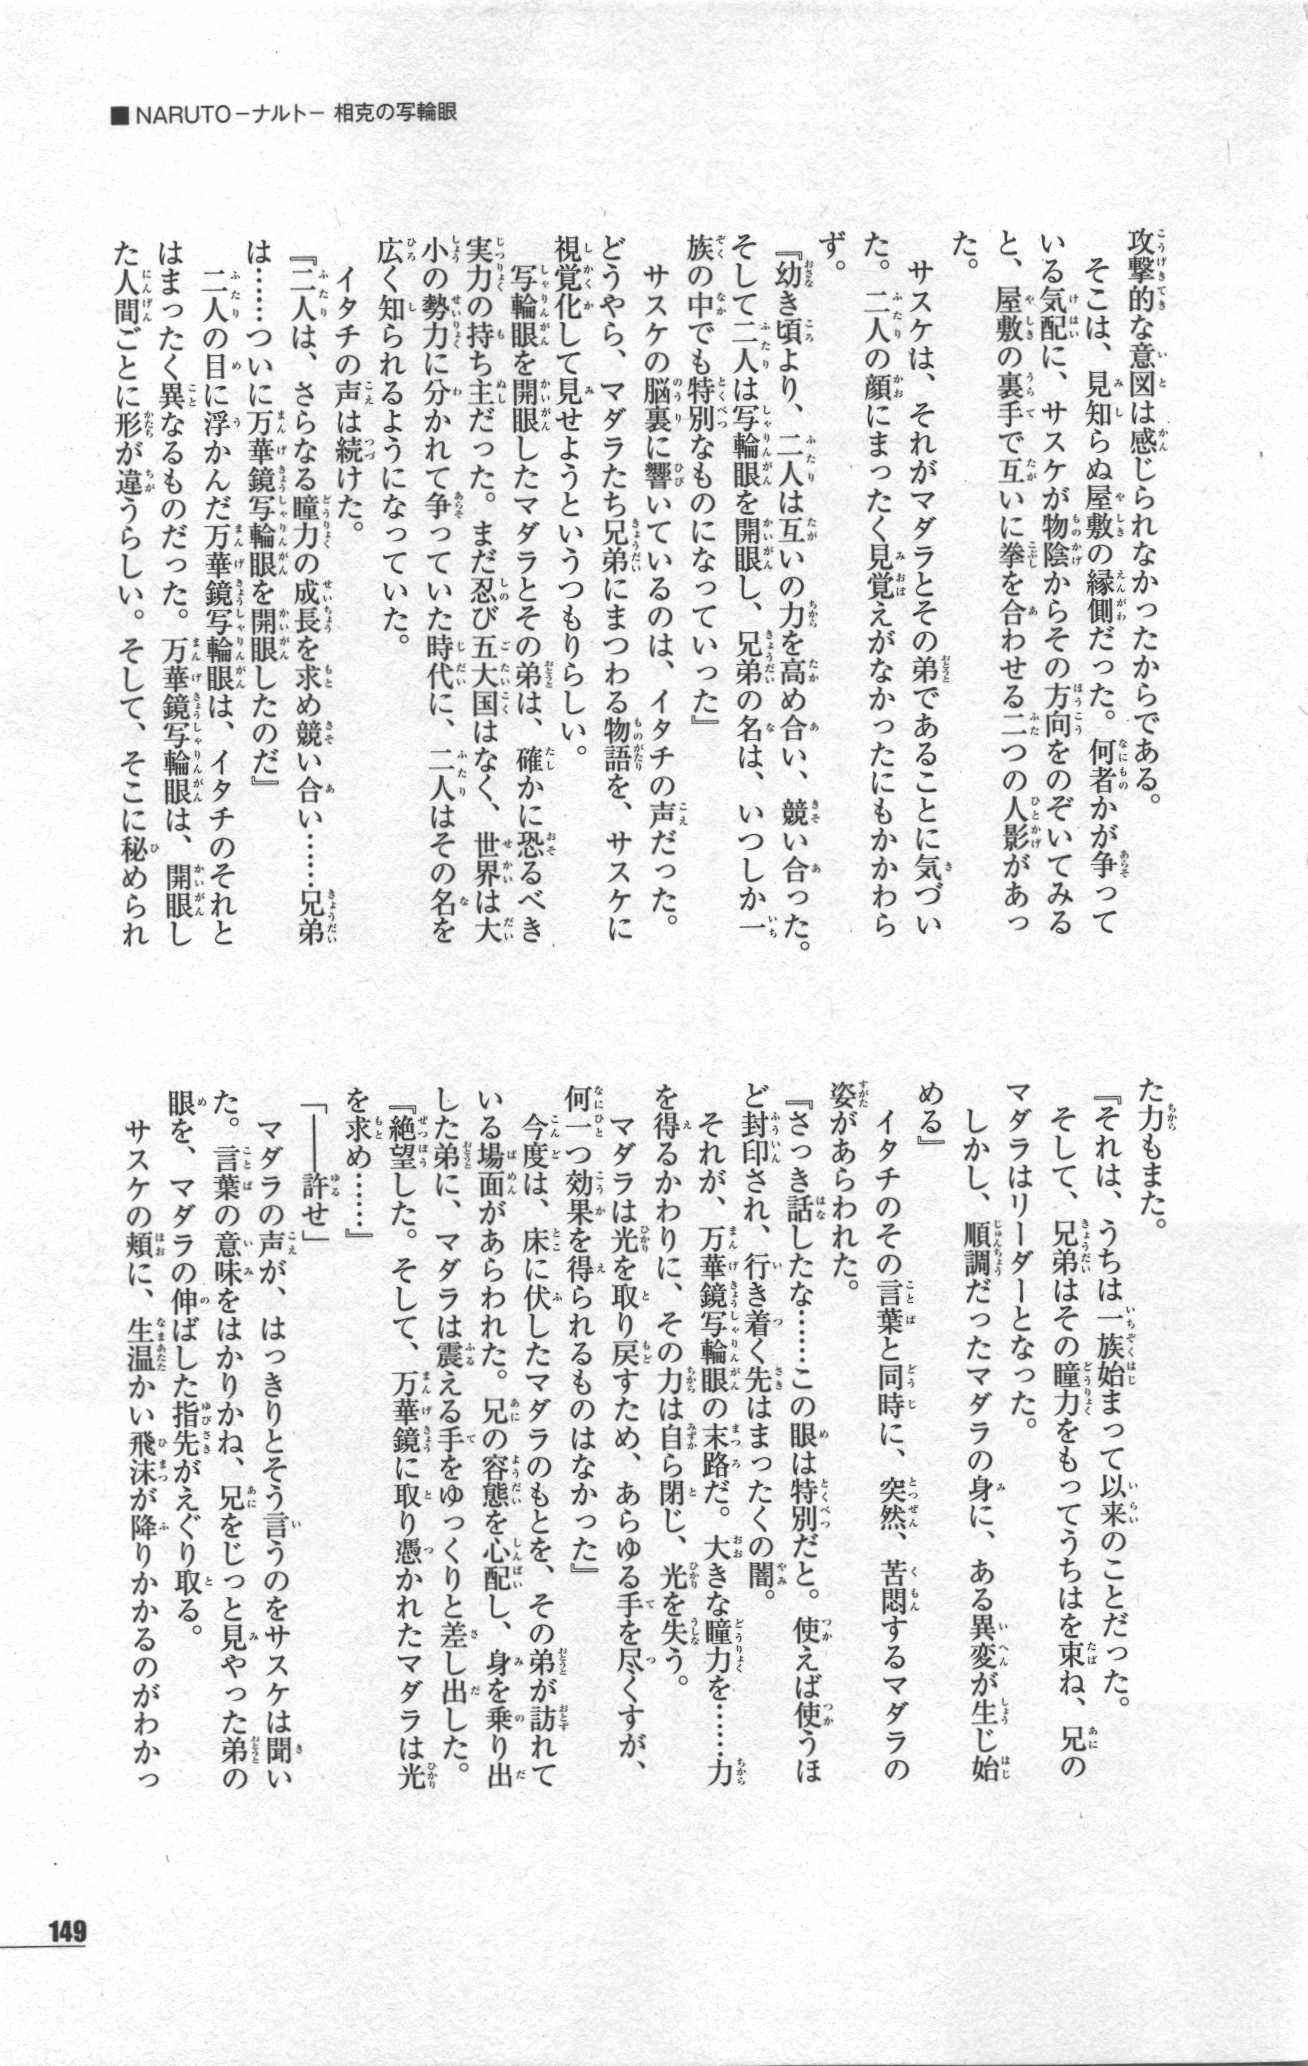 ■NARUTO－ナルト－ 相克の写輪眼
攻撃的な意図は感じられなかったからである。
そこは、見知らぬ屋敷の縁側だった。何者かが争って
いる気配に、サスケが物陰からその方向をのぞいてみる
と、屋敷の裏手で互いに拳を合わせる二つの人影があっ
た。
サスケは、それがマダラとその弟であることに気づい
た。二人の顔にまったく見覚えがなかったにもかかわら
ず。
『幼き頃より、二人は互いの力を高め合い、競い合った。
そして二人は写輪眼を開眼し、兄弟の名は、いつしか一
族の中でも特別なものになっていった』
サスケの脳裏に響いているのは、イタチの声だった。
どうやら、マダラたち兄弟にまつわる物語を、サスケに
視覚化して見せようというつもりらしい。
写輪眼を開眼したマダラとその弟は、確かに恐るべき
実力の持ち主だった。まだ忍び五大国はなく、世界は大
小の勢力に分かれて争っていた時代に、二人はその名を
広く知られるようになっていた。
イタチの声は続けた。
『二人は、さらなる瞳力の成長を求め競い合い……兄弟
は……ついに万華鏡写輪眼を開眼したのだ』
二人の目に浮かんだ万華鏡写輪眼は、イタチのそれと
はまったく異なるものだった。万華鏡写輪眼は、開眼し
た人間ごとに形が違うらしい。そして、そこに秘められ
た力もまた。
『それは、うちは一族始まって以来のことだった。
そして、兄弟はその瞳力をもってうちはを束ね、兄の
マダラはリーダーとなった。
しかし、順調だったマダラの身に、ある異変が生じ始
める』
イタチのその言葉と同時に、突然、苦悶するマダラの
姿があらわれた。
『さっき話したな……この眼は特別だと。使えば使うほ
ど封印され、行き着く先はまったくの闇。
それが、万華鏡写輪眼の末路だ。大きな瞳力を……力
を得るかわりに、その力は自ら閉じ、光を失う。
マダラは光を取り戻すため、あらゆる手を尽くすが、
何一つ効果を得られるものはなかった』
今度は、床に伏したマダラのもとを、その弟が訪れて
いる場面があらわれた。兄の容態を心配し、身を乗り出
した弟に、マダラは震える手をゆっくりと差し出した。
『絶望した。そして、万華鏡に取り憑かれたマダラは光
を求め……』
「――許せ」
マダラの声が、はっきりとそう言うのをサスケは聞い
た。言葉の意味をはかりかね、兄をじっと見やった弟の
眼を、マダラの伸ばした指先がえぐり取る。
サスケの頬に、生温かい飛沫が降りかかるのがわかっ
149